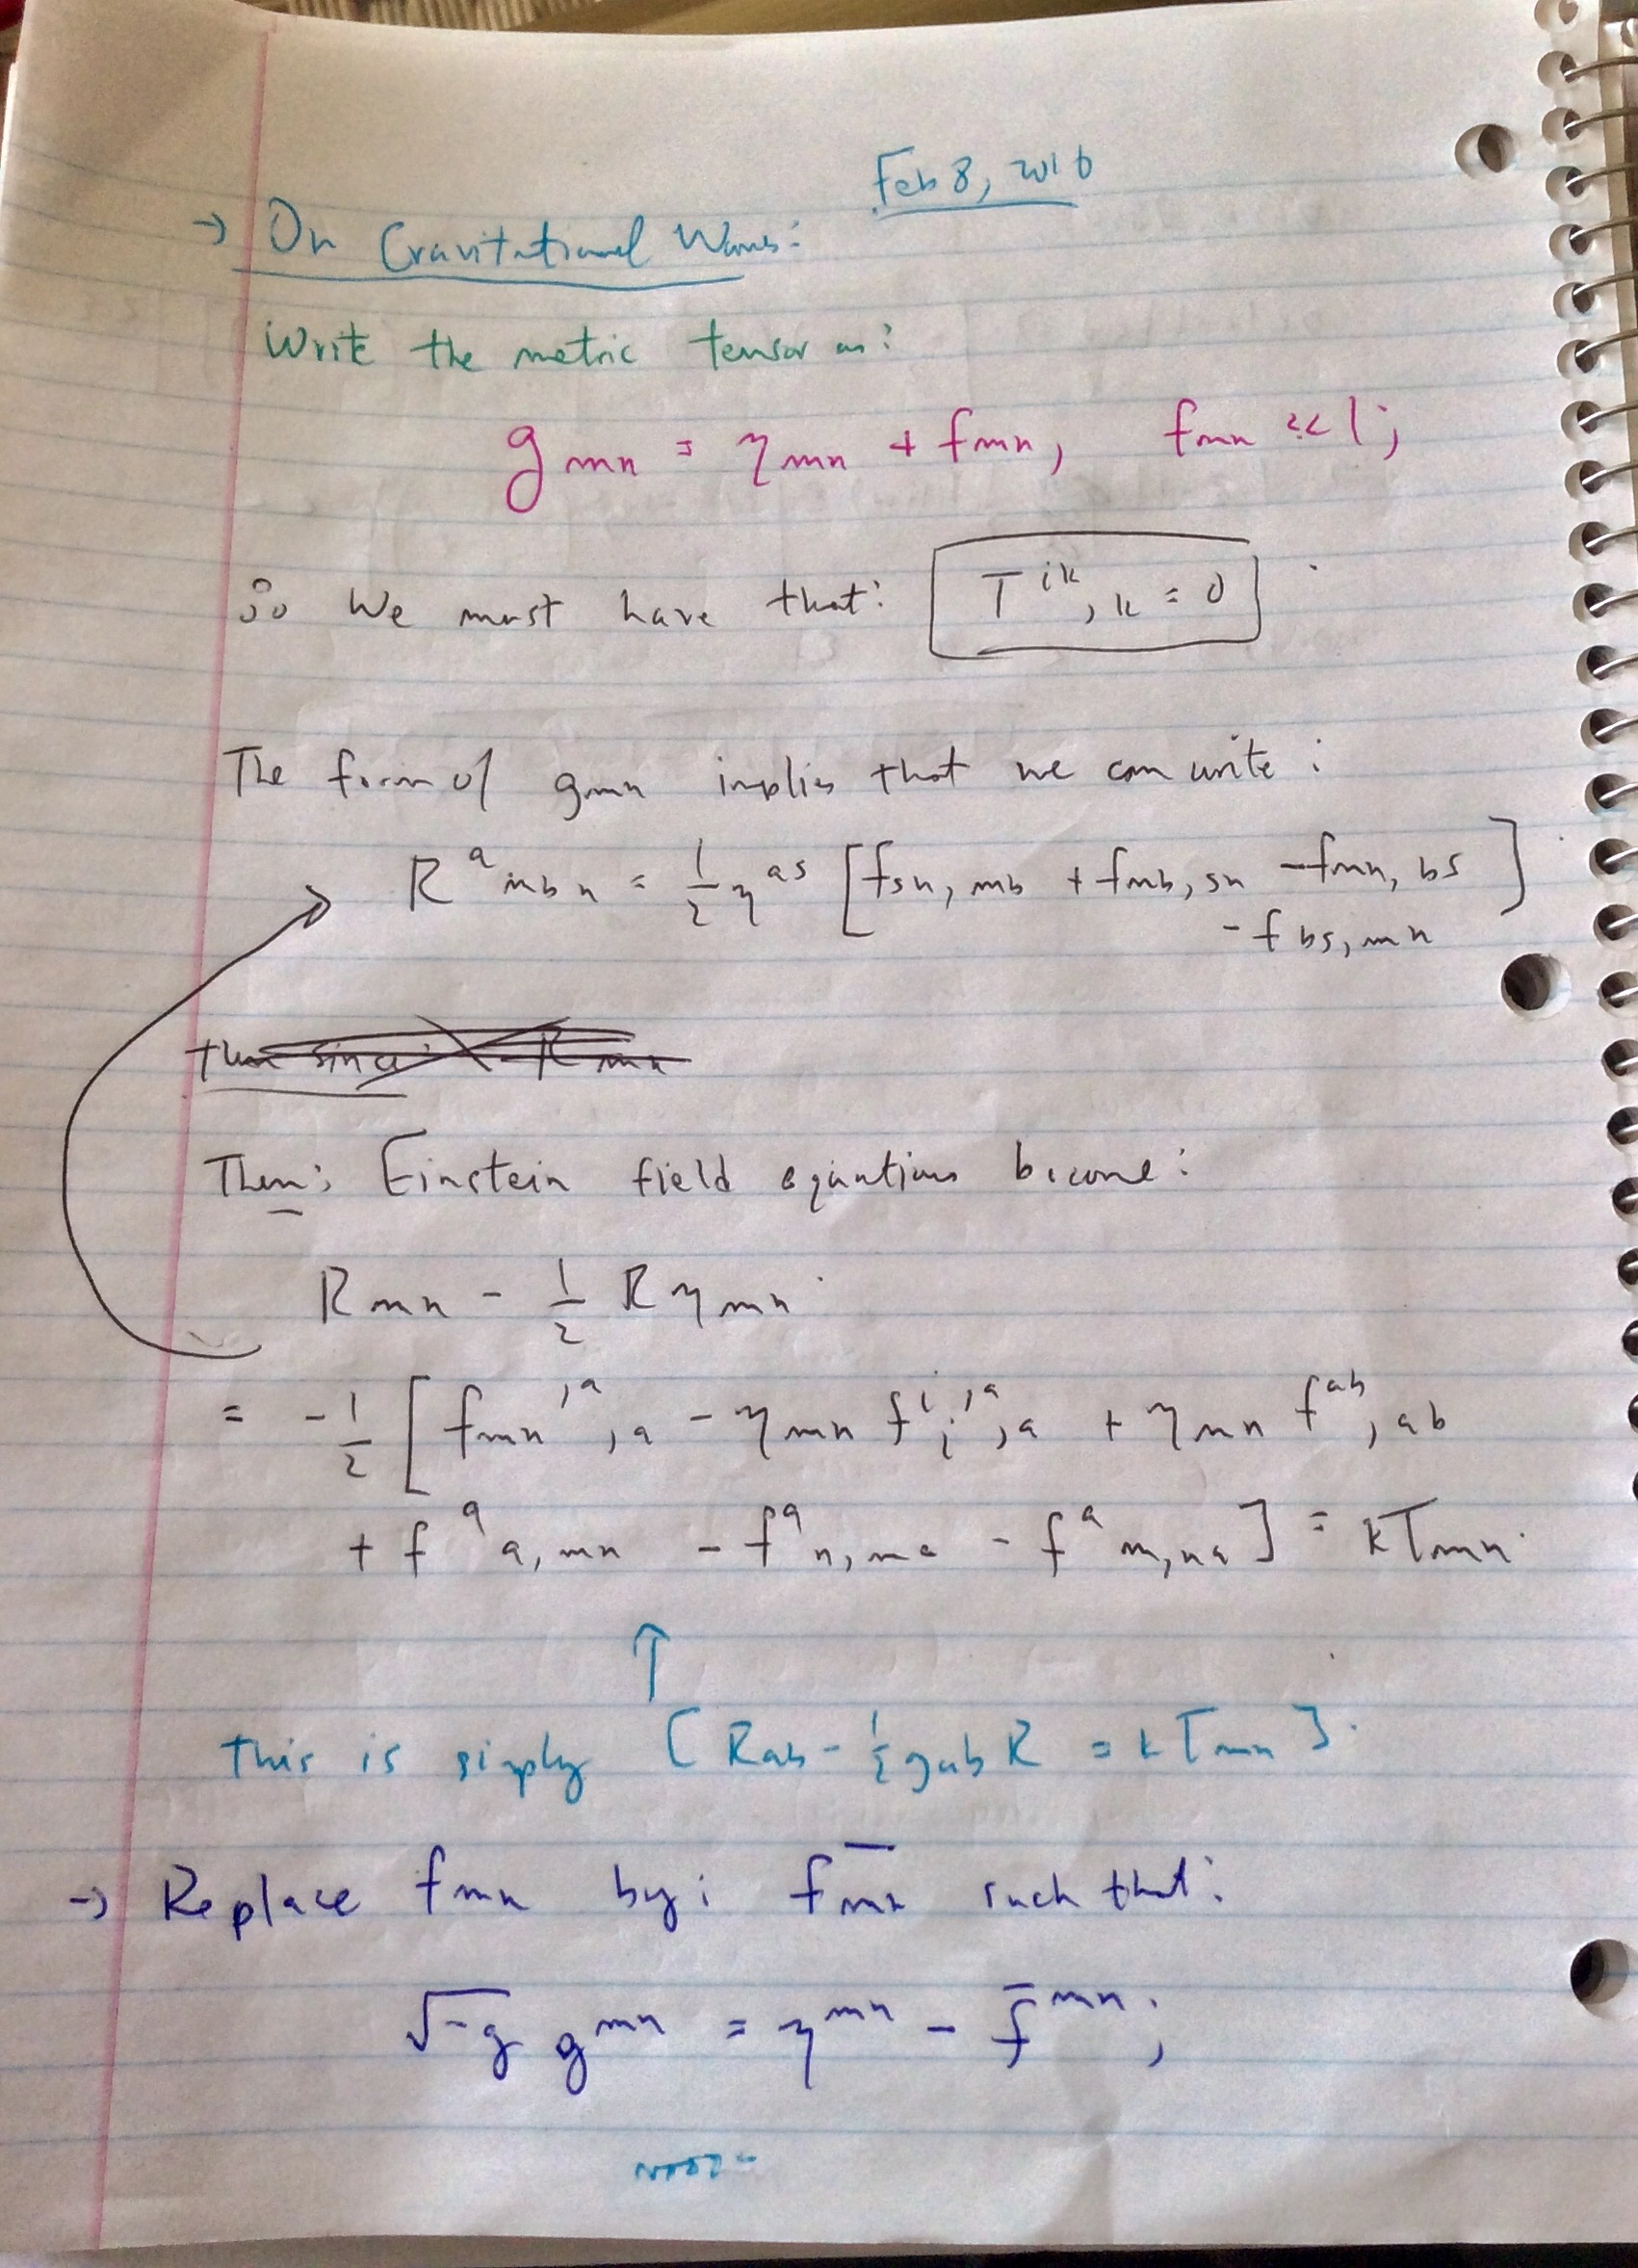 Feb 8, 2016
→ On Gravitational Waves:
Write the metric tensor as:
g_mn = η_mn + f_mn, f_mn << 1;
So we must have that: T^{ik}_{,k} = 0
The form of g_mn implies that we can write:
R^a_{mbn} = 1/2 η^{as} [f_{sn,mb} + f_{mb,sn} - f_{mn,bs}
- f_{bs,mn}]
then since: R_mn
Then: Einstein field equations become:
R_mn - 1/2 R η_mn
= -1/2 [f_{mn}^{,a}_{,a} - η_mn f^i_i^{,a}_{,a} + η_mn f^{ab}_{,ab}
+ f^a_{a,mn} - f^a_{n,ma} - f^a_{m,na}] = kT_mn.
↑
this is simply [R_ab - 1/2 g_ab R = kT_mn].
→ Replace f_mn by: f̄_mn such that:
√-g g^{mn} = η^{mn} - f̄^{mn};